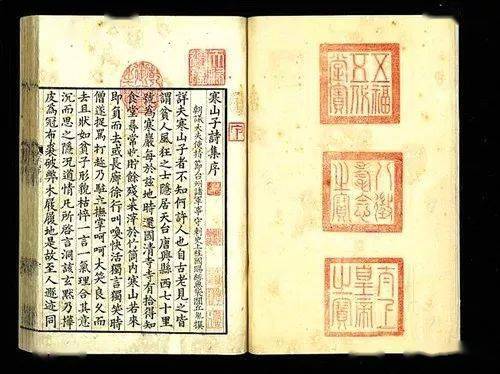 五福五代堂寶
八徵耄念之寶
太上皇帝之寶
寒山子詩集序
朝議大夫使持節台州諸軍事守刺史上柱國賜緋魚袋閭丘胤撰
詳夫寒山子者不知何許人也自古老見之皆
謂貧人風狂之士隱居天台唐興縣西七十里
號為寒巖每於茲地時還國清寺寺有拾得知
食堂尋常收貯餘殘菜滓於竹筒內寒山若來
即負而去或長廊徐行叫喚快活獨言獨笑時
僧遂捉罵打趁乃駐立撫掌呵呵大笑良久而
去且狀如貧子形貌枯悴一言一氣理合其意
沉而思之隱況道情凡所啓言洞該玄默乃樺
皮為冠布裘破弊木屐履地是故至人遯迹同